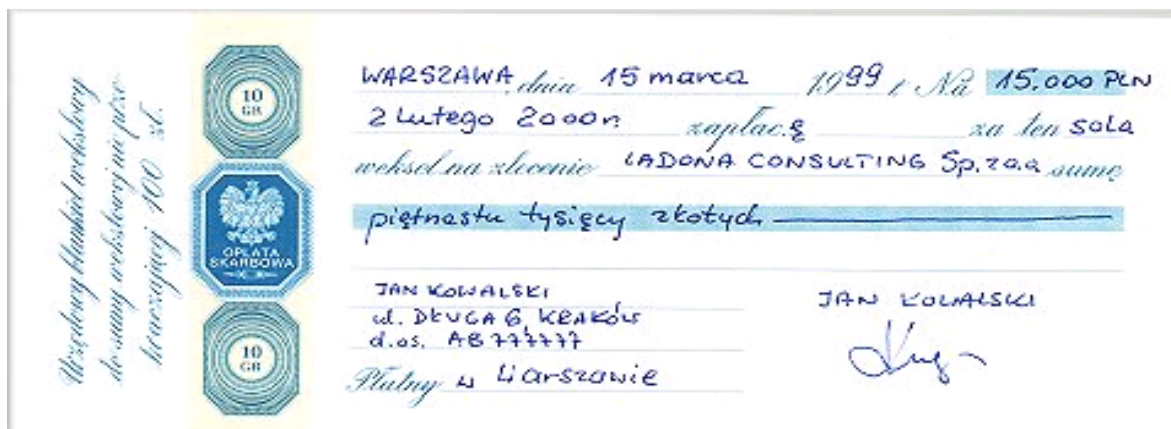 Urzędowy blankiet wekslowy
do sumy wekslowej nie prze-
kraczającej 100 zł.
10
GR
OPŁATA
SKARBOWA
10
GR
WARSZAWA, dnia 15 marca 1999 r. Na 15.000 PLN
2 Lutego 2000r. zapłac.ę za ten sola
weksel na zlecenie LADONA CONSULTING Sp. z o.o. sumę
piętnastu tysięcy złotych
JAN KOWALSKI
ul. DŁUGA 6, KRAKÓW
d.os. AB 777777
Płatny w Warszawie
JAN KOWALSKI